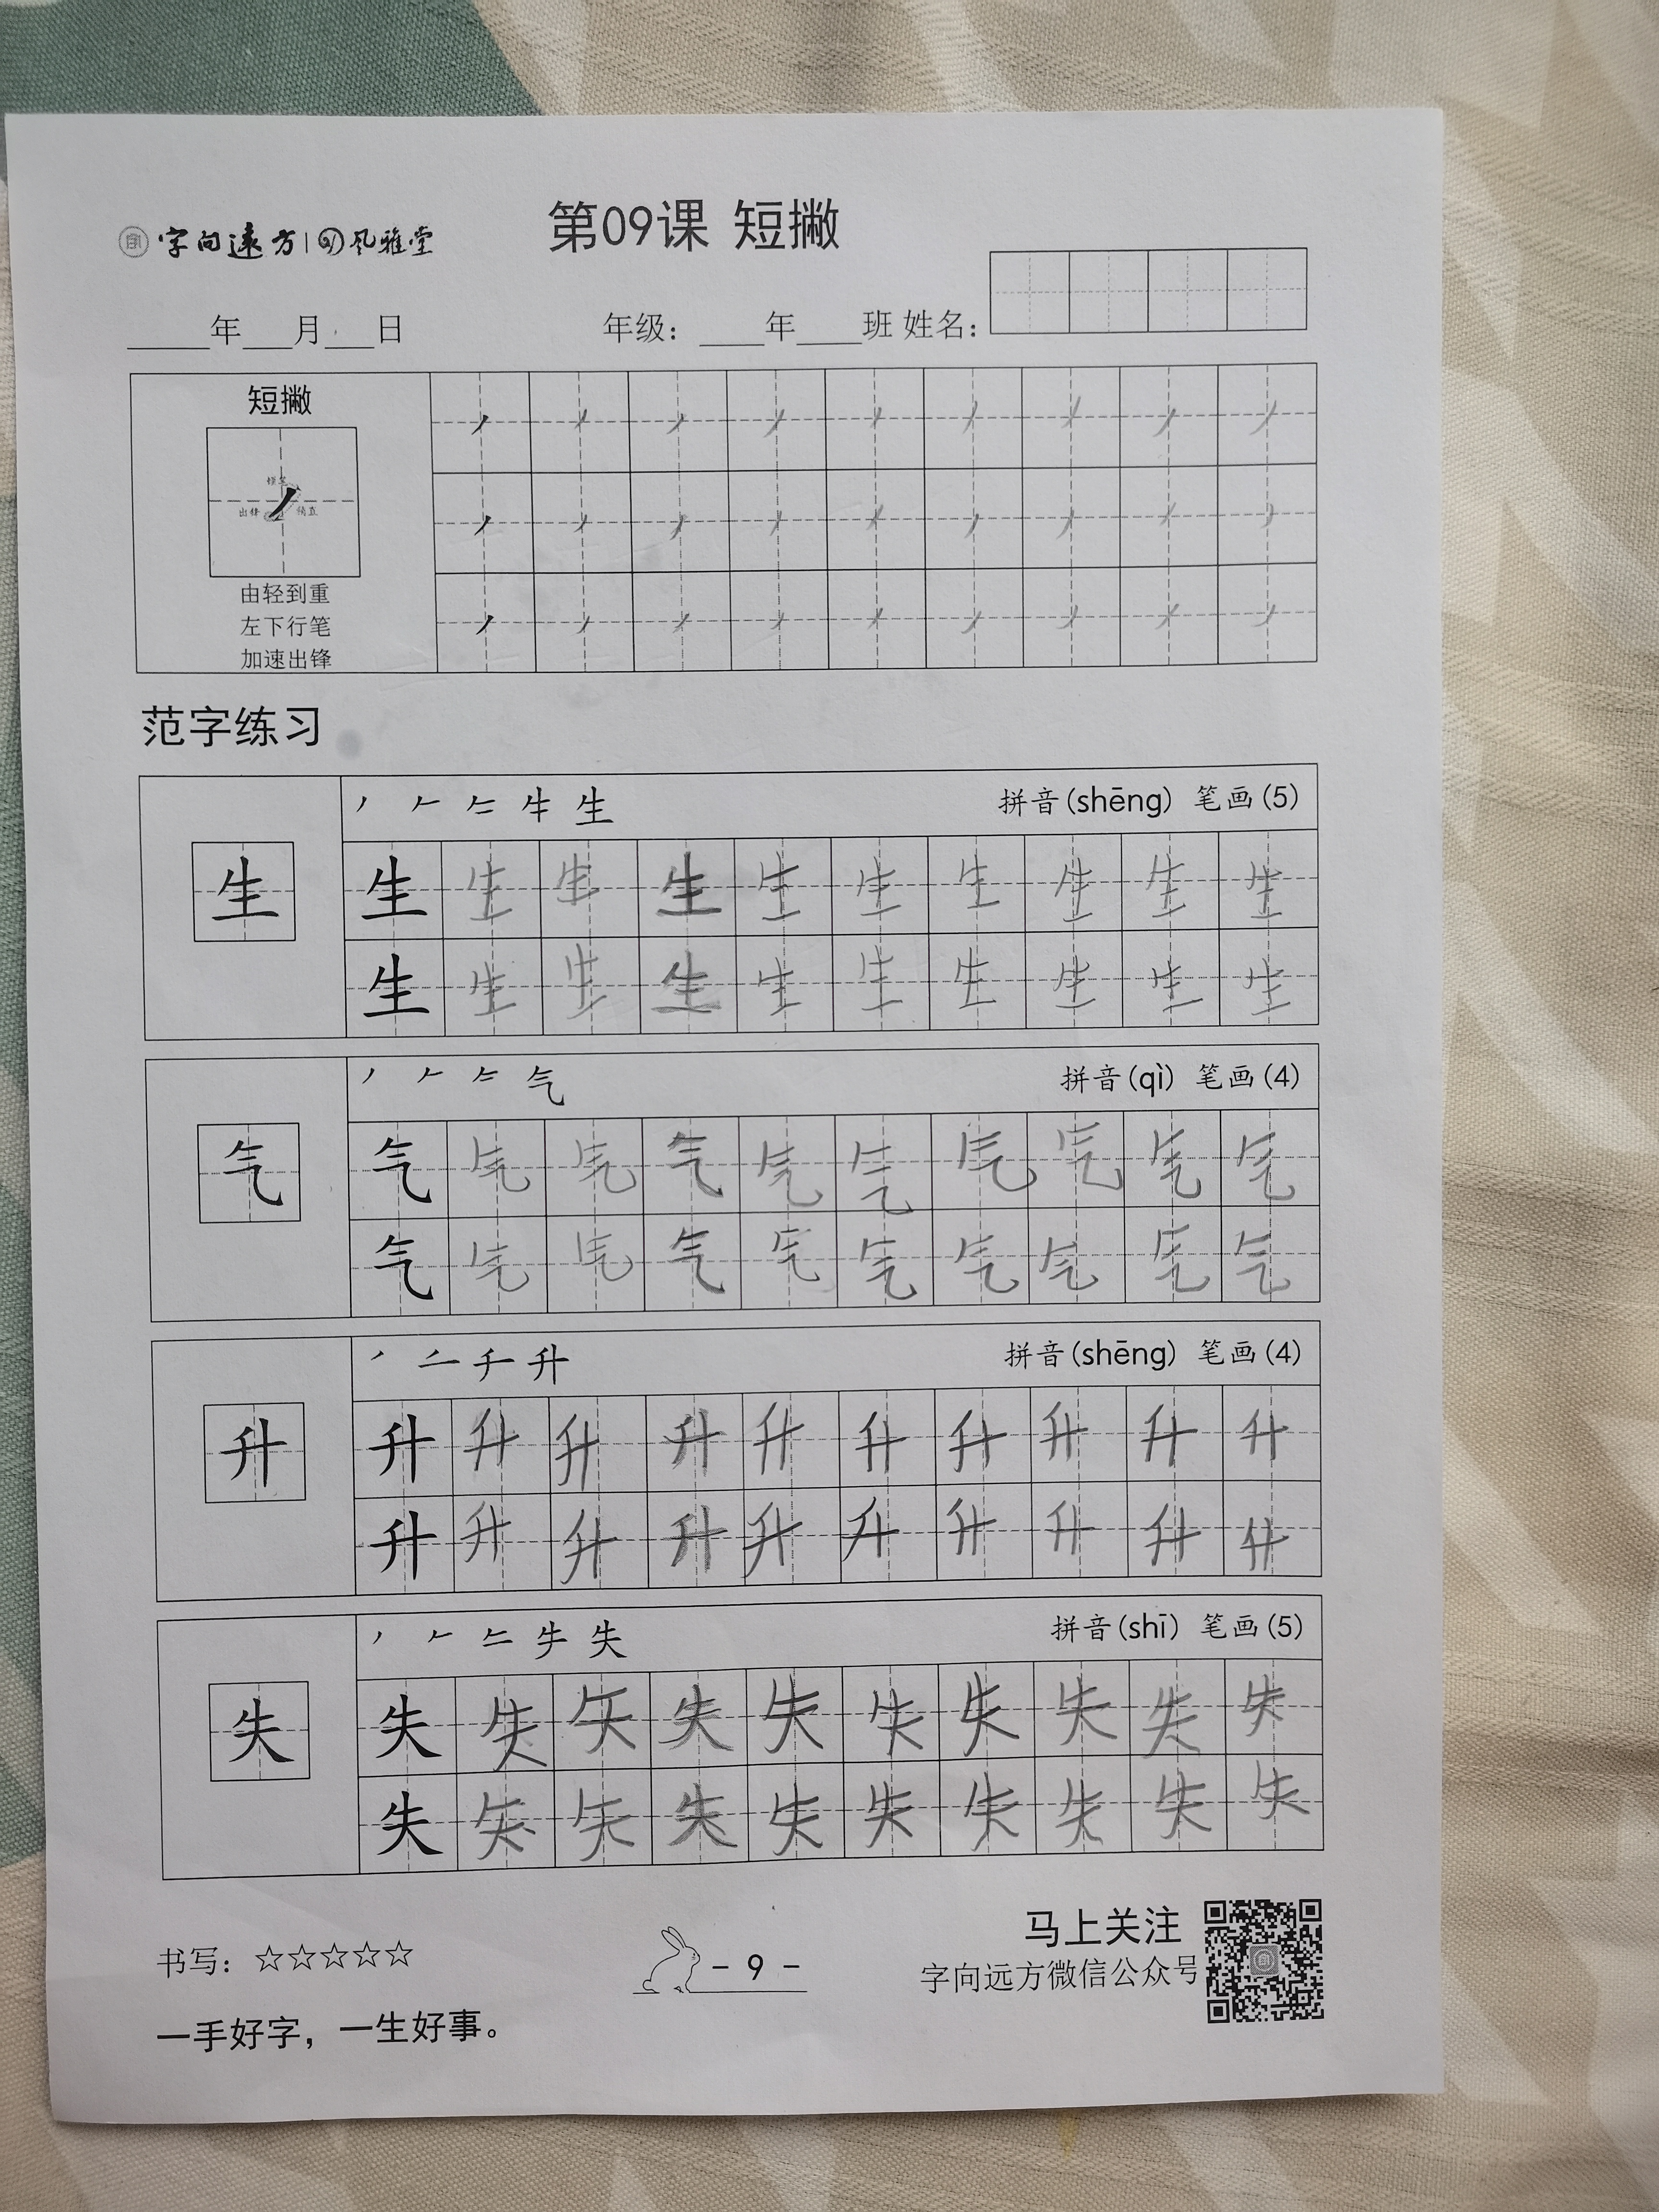 字向远方 | 风雅堂
第09课 短撇
_____年___月___日 年级：____年____班 姓名：
短撇
提笔
出锋 稍直
由轻到重
左下行笔
加速出锋
范字练习
生 拼音(shēng) 笔画(5)
生 生 生 生 生 生 生 生 生 生 生
生 生 生 生 生 生 生 生 生 生
气 拼音(qì) 笔画(4)
气 气 气 气 气 气 气 气 气 气 气
气 气 气 气 气 气 气 气 气 气
升 拼音(shēng) 笔画(4)
升 升 升 升 升 升 升 升 升 升 升
升 升 升 升 升 升 升 升 升 升
失 拼音(shī) 笔画(5)
失 失 失 失 失 失 失 失 失 失 失
失 失 失 失 失 失 失 失 失 失
书写：☆☆☆☆☆
- 9 -
马上关注
字向远方微信公众号
一手好字，一生好事。